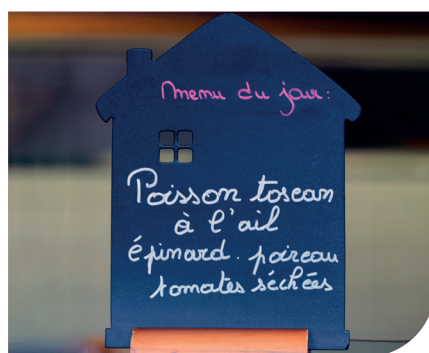 Menu du jour:
Poisson toscan
à l'ail
épinard. poireau
tomates séchées